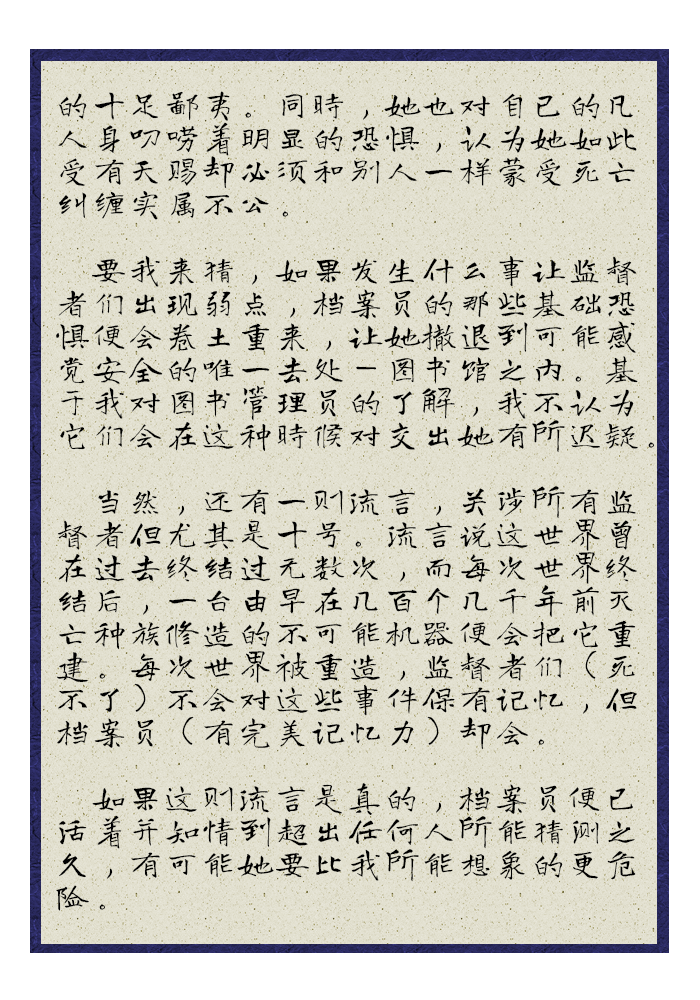 的十足鄙夷。同時，她也对自已的凡
人身叨唠着明显的恐惧，认为她如此
受有天赐却必须和别人一样蒙受死亡
纠缠实属不公。
要我来猜，如果发生什么事让监督
者们出现弱点，档案员的那些基础恐
惧便会卷土重来，让她撤退到可能感
觉安全的唯一去处－图书馆之内。基
于我对图书管理员的了解，我不认为
它们会在这种時候对交出她有所迟疑。
当然，还有一则流言，关涉所有监
督者但尤其是十号。流言说这世界曾
在过去终结过无数次，而每次世界终
结后，一台由早在几百个几千年前灭
亡种族修造的不可能机器便会把它重
建。每次世界被重造，监督者们（死
不了）不会对这些事件保有记忆，但
档案员（有完美记忆力）却会。
如果这则流言是真的，档案员便已
活着并知情到超出任何人所能猜测之
久，有可能她要比我所能想象的更危
险。